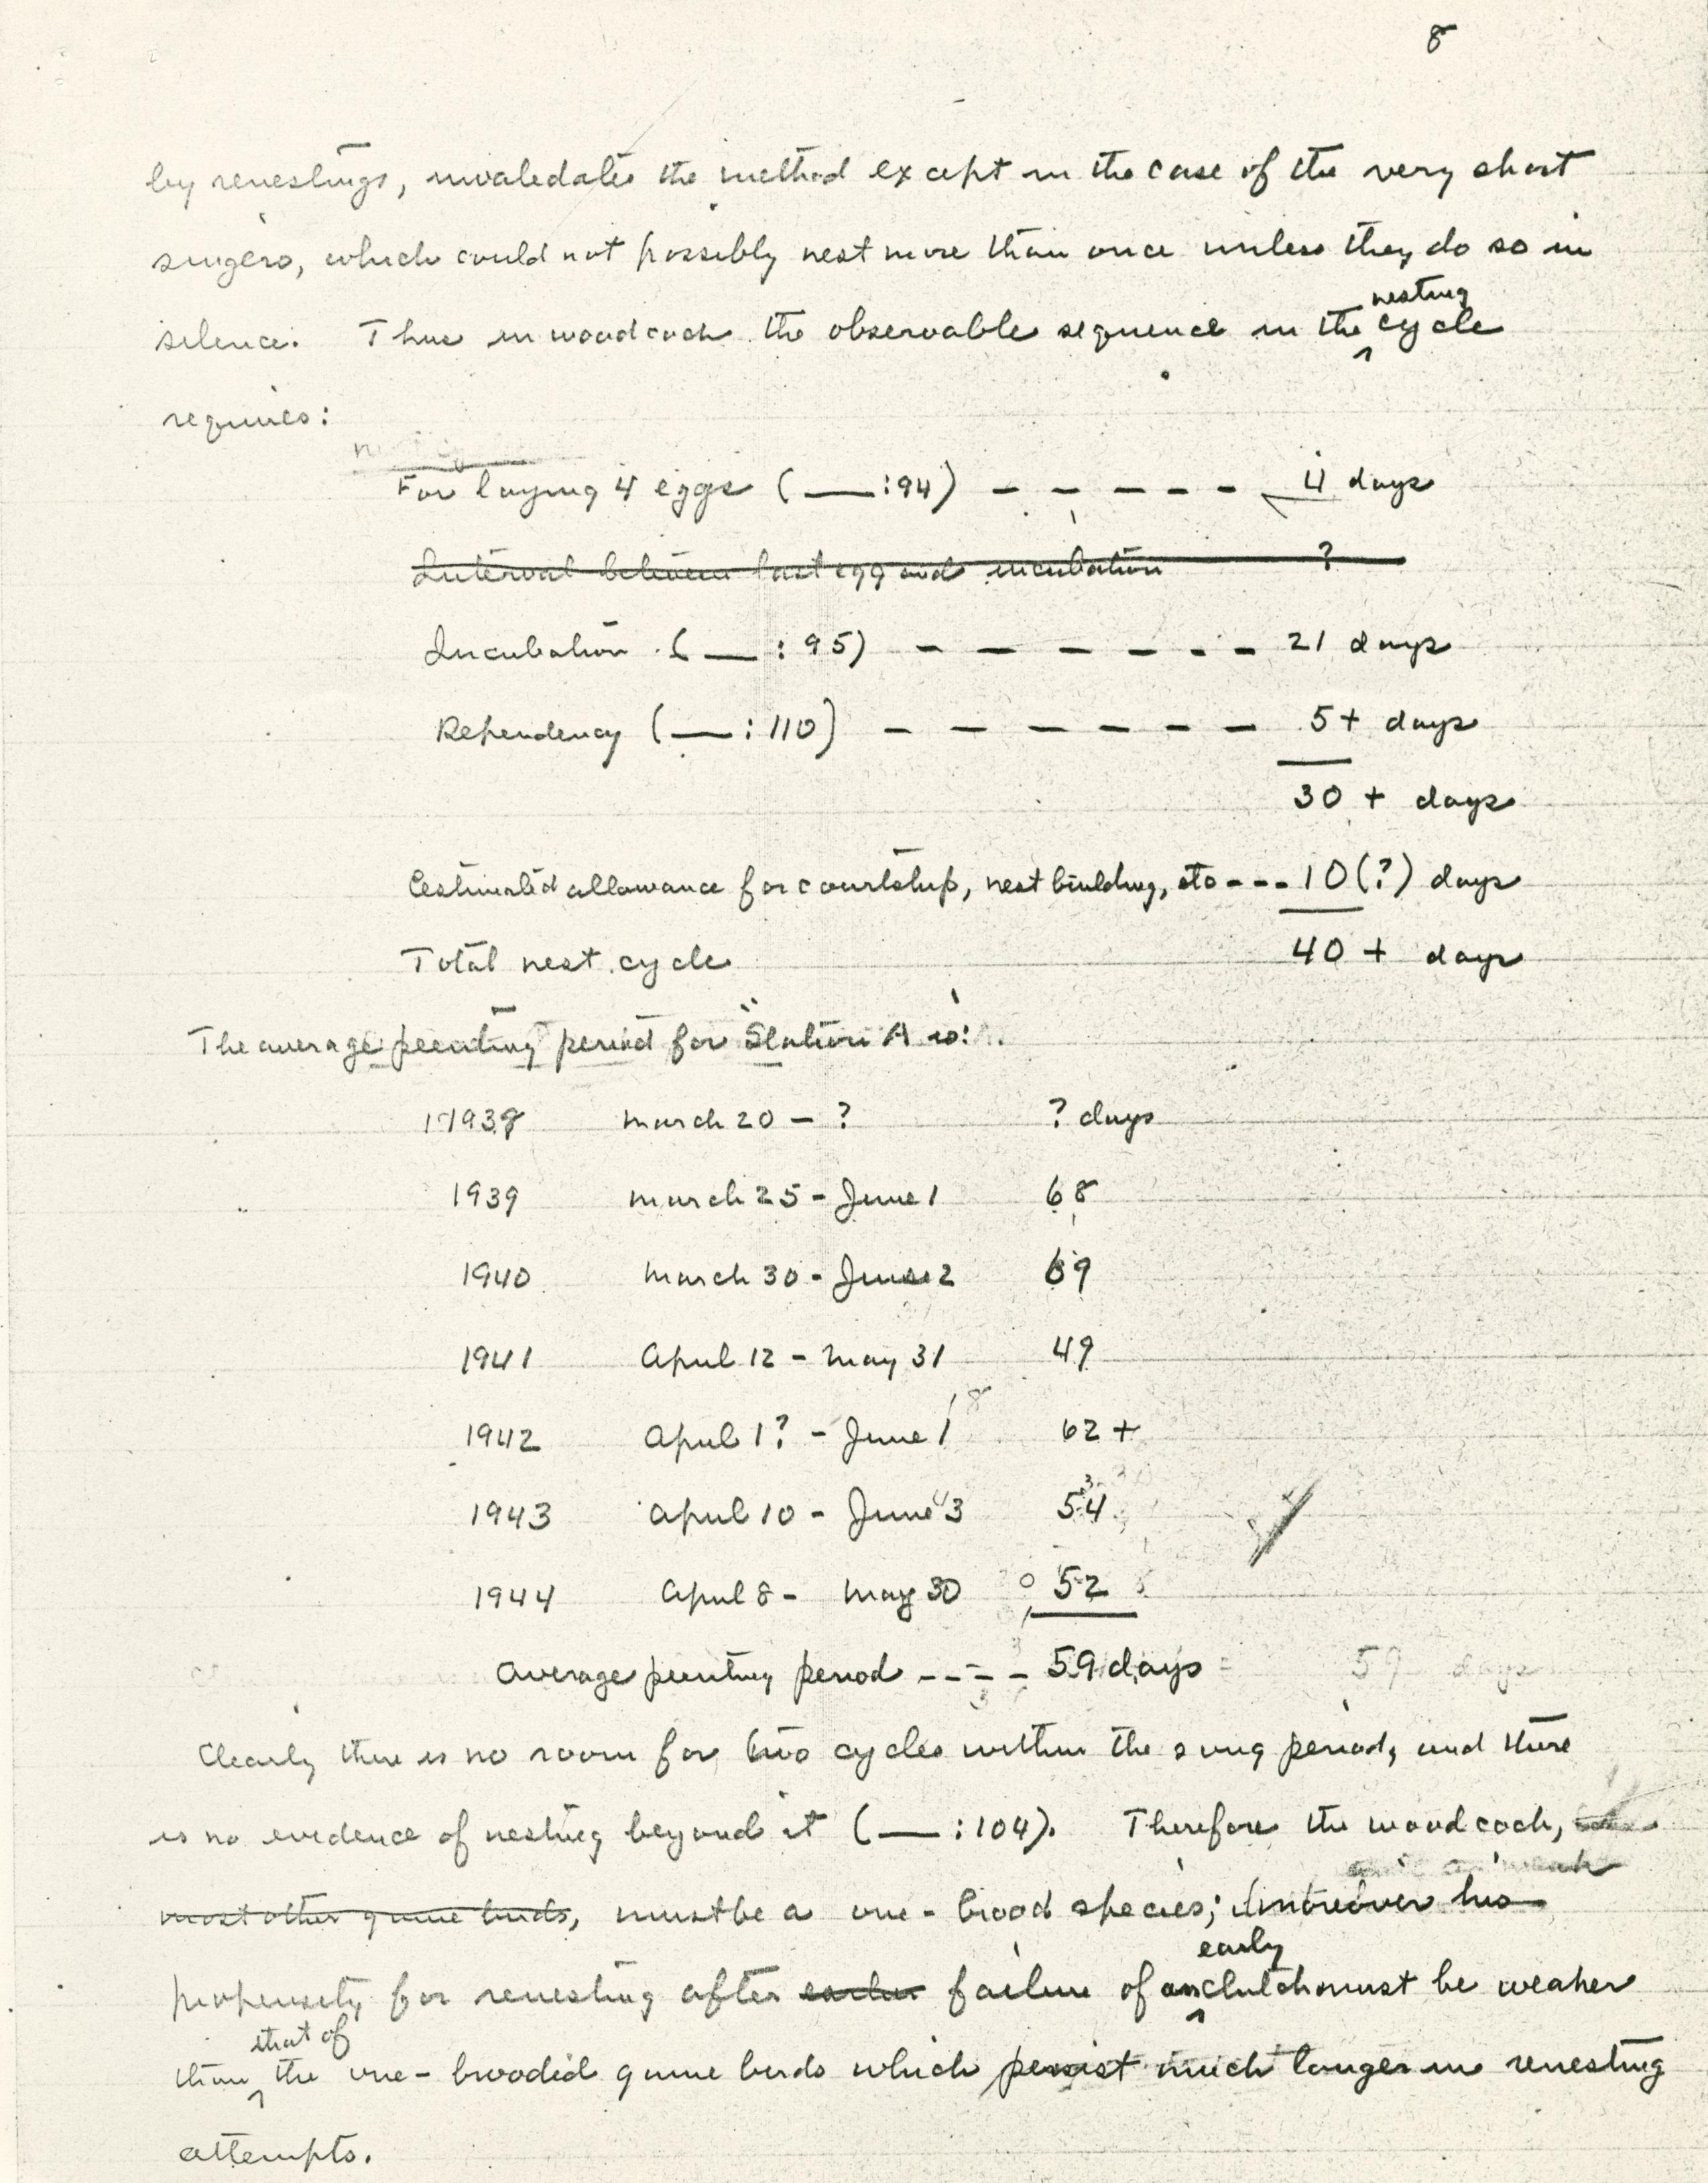 8
by renestings, invalidates the method except in the case of the very short
singers, which could not possibly nest more than once unless they do so in
silence. Thus in woodcock the observable sequence in the nesting cycle
requires:
For laying 4 eggs (___:94) - - - - - 4 days
Interval between last egg and incubation ?
Incubation (___:95) - - - - - - 21 days
Dependency (___:110) - - - - - - 5+ days
30 + days
Estimated allowance for courtship, nest building, etc - - - 10(?) days
Total nest cycle 40 + days
The average peenting period for Station A is:
1938 March 20 - ? ? days
1939 March 25 - June 1 68
1940 March 30 - June 2 69
1941 April 12 - May 31 49
1942 April 1? - June 1 62 +
1943 April 10 - June 3 54
1944 April 8 - May 30 52
Average peenting period - - - - 59 days = 59 days
Clearly there is no room for two cycles within the song period, and there
is no evidence of nesting beyond it (___:104). Therefore the woodcock,
most other game birds, must be a one-brood species; moreover his
propensity for renesting after earlier failure of an early clutch must be weaker
than that of the one-brooded game birds which persist much longer in renesting
attempts.